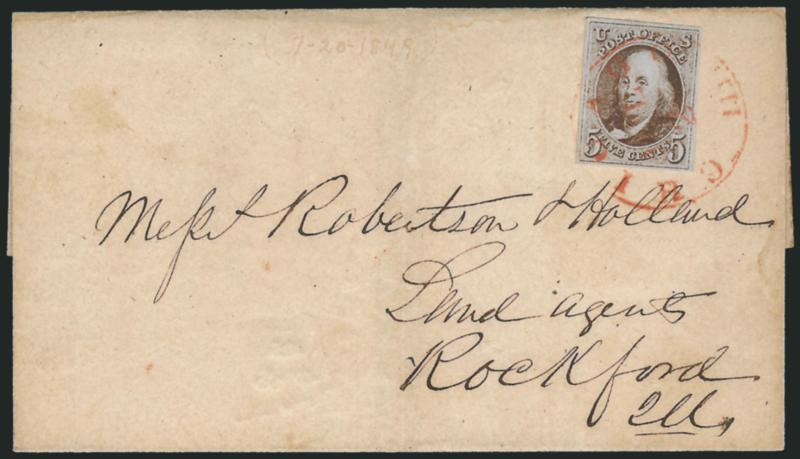 (7-20-1849)
U S
POST OFFICE
FIVE CENTS
5 5
Messrs Robertson & Holland
Land agents
Rockford
Ills,